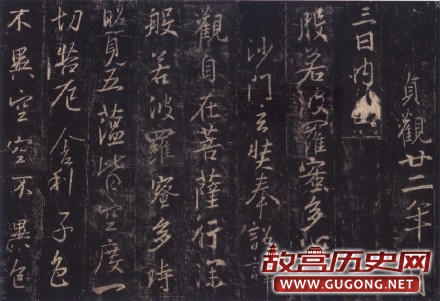 貞觀廿二年
三日內出
般若波羅蜜多
沙門玄奘奉詔
觀自在菩薩行深
般若波羅蜜多時
照見五蘊皆空度一
切苦厄舍利子色
不異空空不異色
故宫历史网
WWW.GUGONG.NET